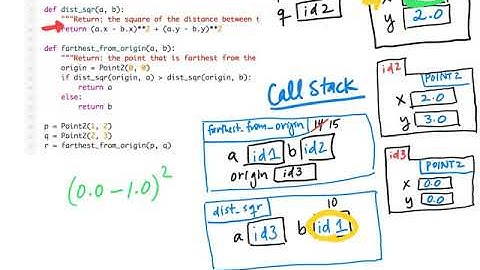 def dist_sqr(a, b):
"""Return: the square of the distance between t
return (a.x - b.x)**2 + (a.y - b.y)**2
def farthest_from_origin(a, b):
"""Return: the point that is farthest from the
origin = Point2(0, 0)
if dist_sqr(origin, a) > dist_sqr(origin, b):
return a
else:
return b
p = Point2(1, 2)
q = Point2(2, 3)
r = farthest_from_origin(p, q)
(0.0 - 1.0)²
q id2
y 2.0
Call Stack
farthest_from_origin 14 15
a id1 b id2
origin id3
dist_sqr 10
a id3 b id1
id2
POINT2
x 2.0
y 3.0
id3
POINT2
x 0.0
y 0.0